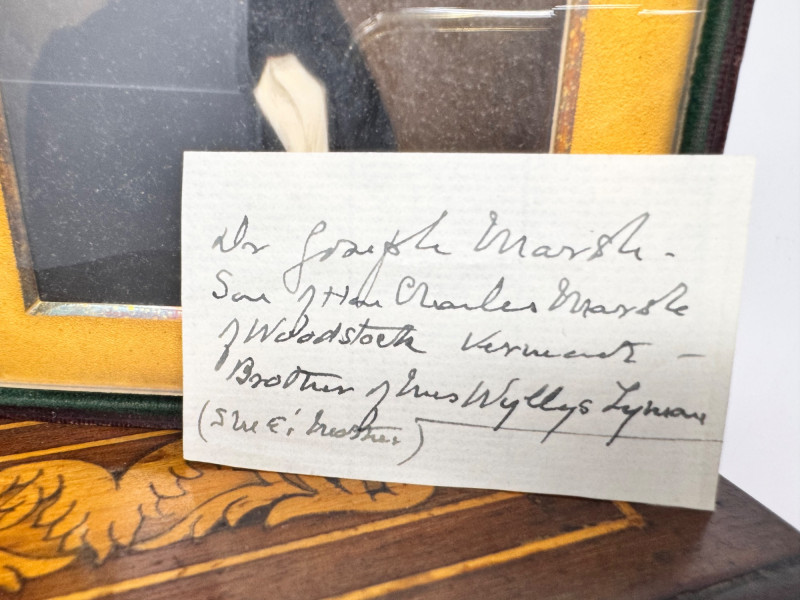 Dr Joseph Marsh -
Son of Hon Charles Marsh
of Woodstock Vermont -
Brother of Mrs Wyllys Lyman
( Mother )